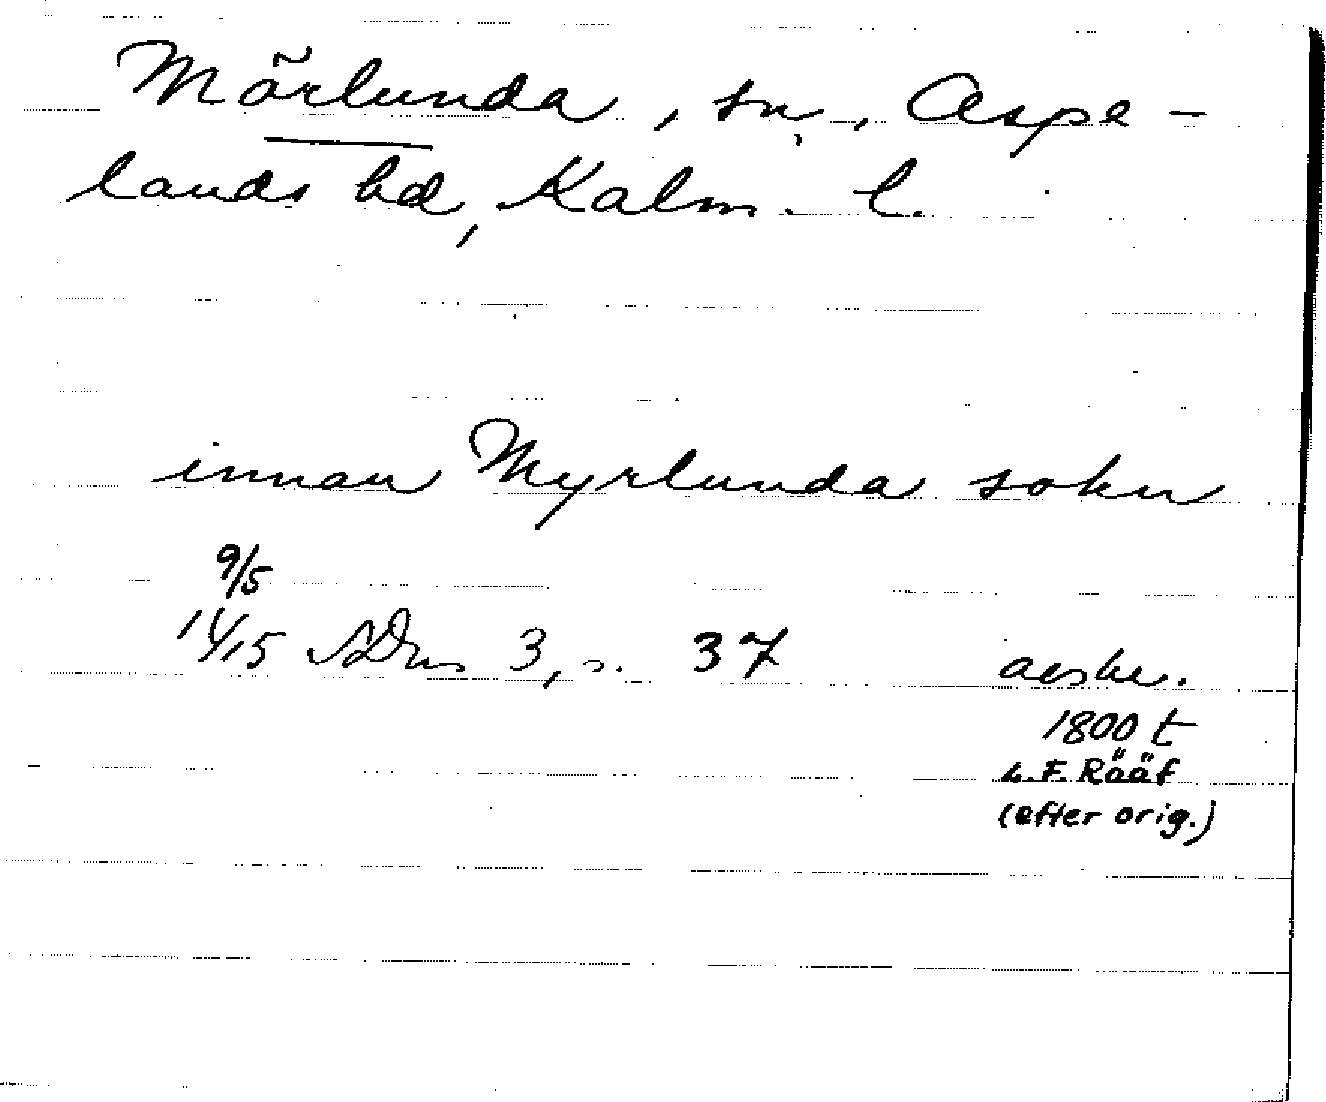 Mörlunda, sn, Aspe-
lands hd, Kalm. l.
innan Myrlunda sokn
9/5
1415 SDns 3, s. 37 avskr.
1800 t
L. F. Rääf
(efter orig.)